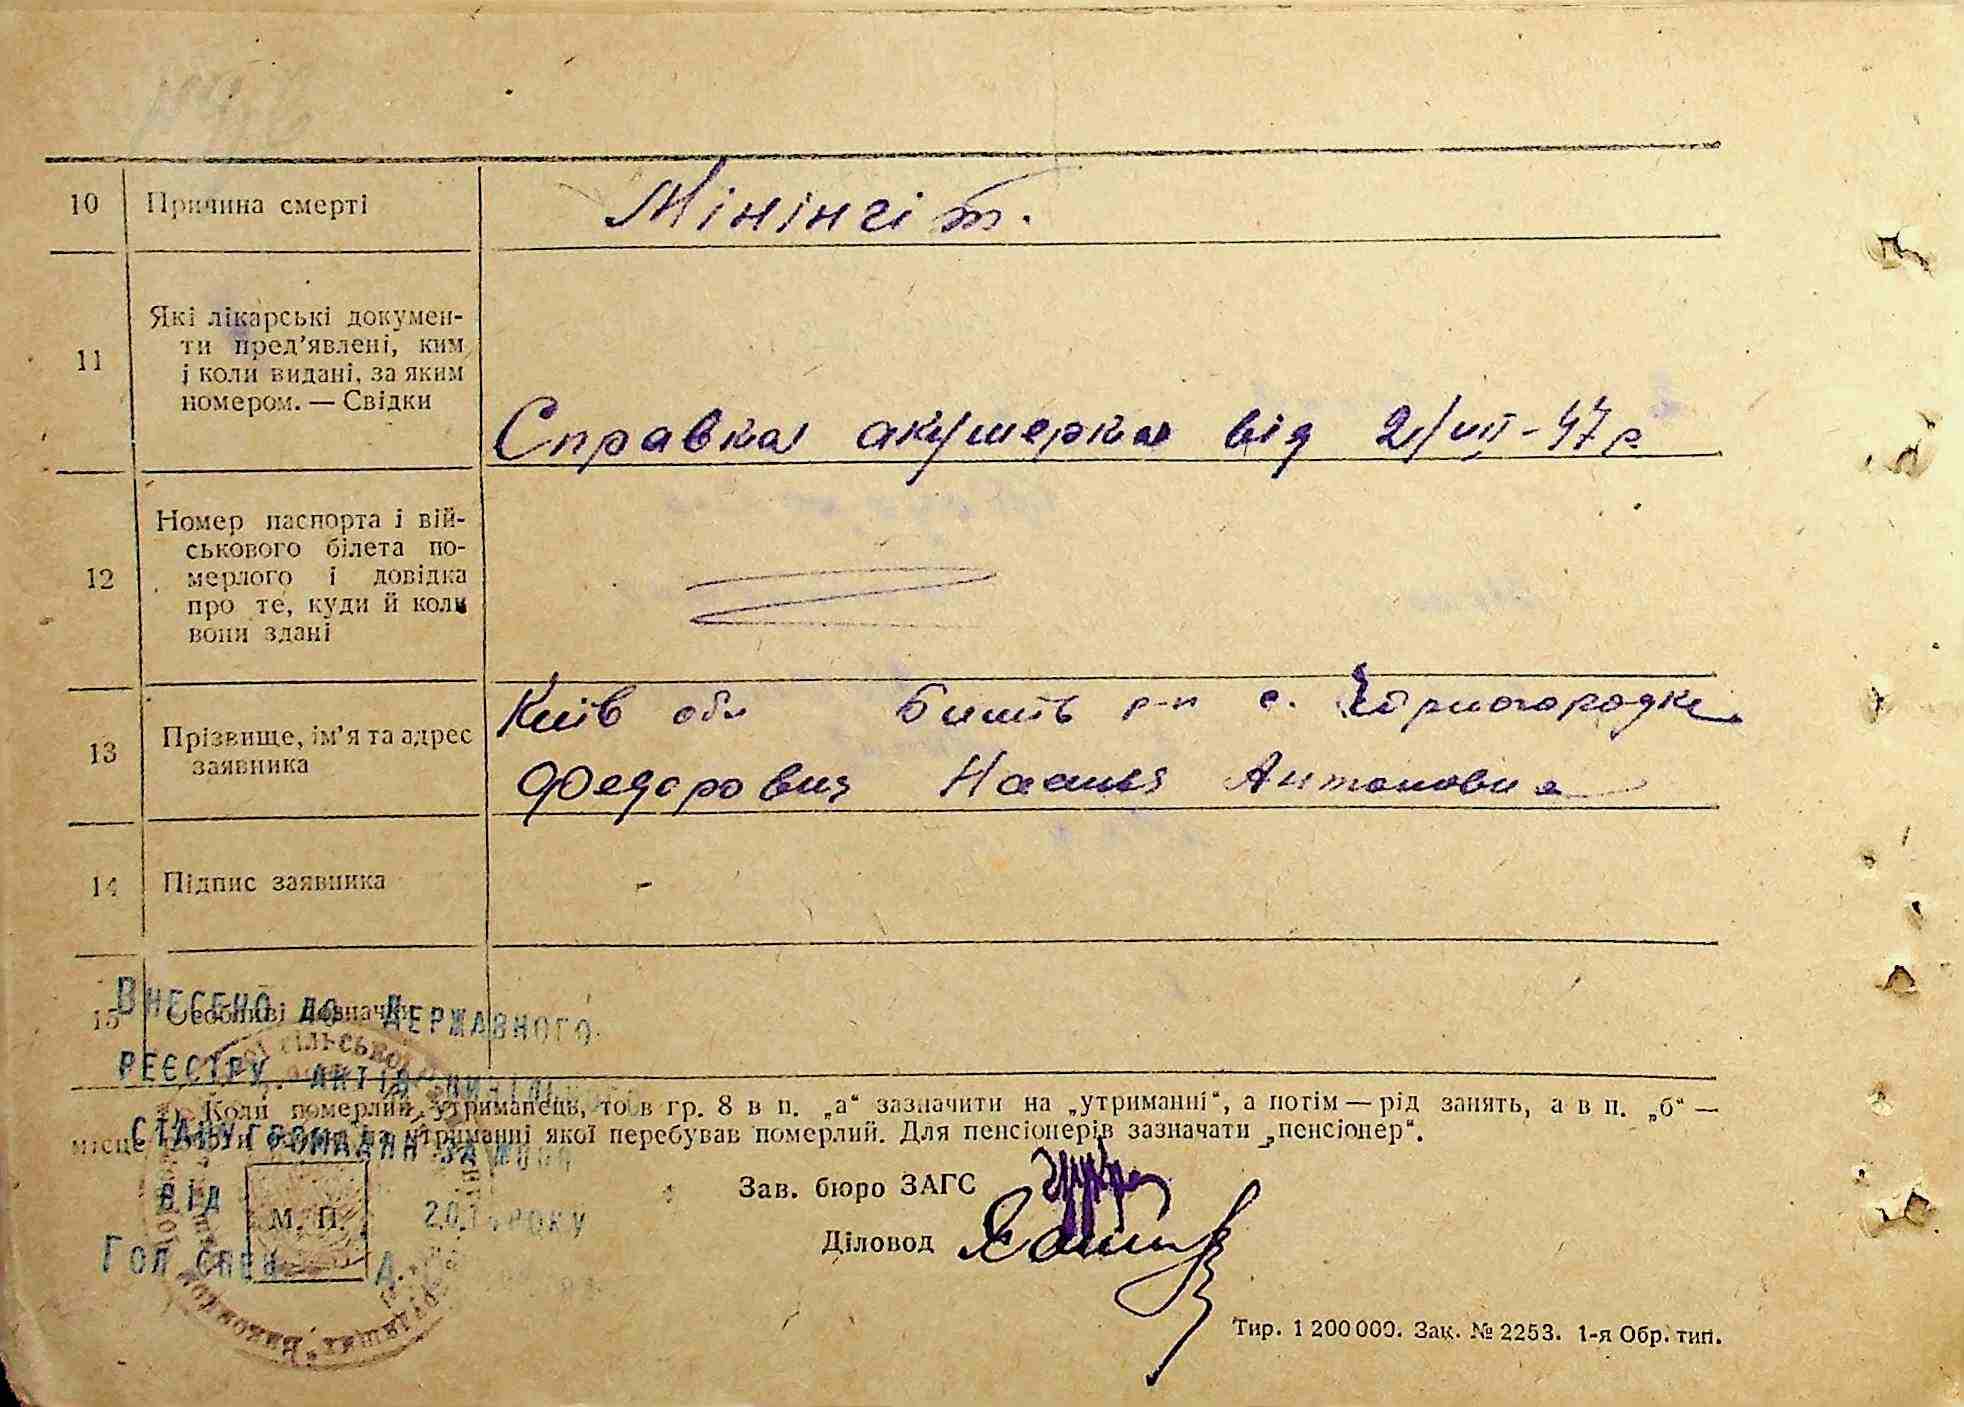 10 Причина смерті Мінінгіт.
11 Які лікарські докумен-
ти пред'явлені, ким
і коли видані, за яким
номером. — Свідки
Справка акушерка від 2/VII-47 р
12 Номер паспорта і вій-
ськового білета по-
мерлого і довідка
про те, куди й коли
вони здані
13 Прізвище, ім'я та адрес
заявника
Київ обл р-н с.
Антоновна
14 Підпис заявника -
15 Особливі зазначки
Внесено до Державного
реєстру актів цивільного
стану громадян за №
від 2015 року
Гол спец
1) Коли померлий утриманець, то в гр. 8 в п. „а“ зазначити на „утриманні“, а потім — рід занять, а в п. „б“ —
місце на утриманні якої перебував померлий. Для пенсіонерів зазначати „пенсіонер“.
М. П.
Зав. бюро ЗАГС
Діловод
Тир. 1 200 000. Зак. № 2253. 1-я Обр. тип.